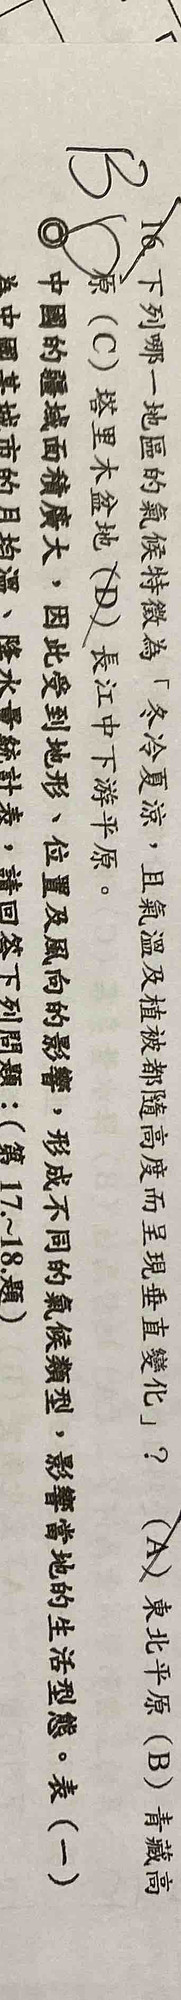 B
16. 下列哪一地區的氣候特徵為「冬冷夏涼，且氣溫及植被都隨高度而呈現垂直變化」？ (A) 東北平原 (B) 青藏高
原 (C) 塔里木盆地 (D) 長江中下游平原。
◎中國的疆域面積廣大，因此受到地形、位置及風向的影響，形成不同的氣候類型，影響當地的生活型態。表(一)
為中國某城市的月均溫、降水量統計表，請回答下列問題：(第 17.~18.題)